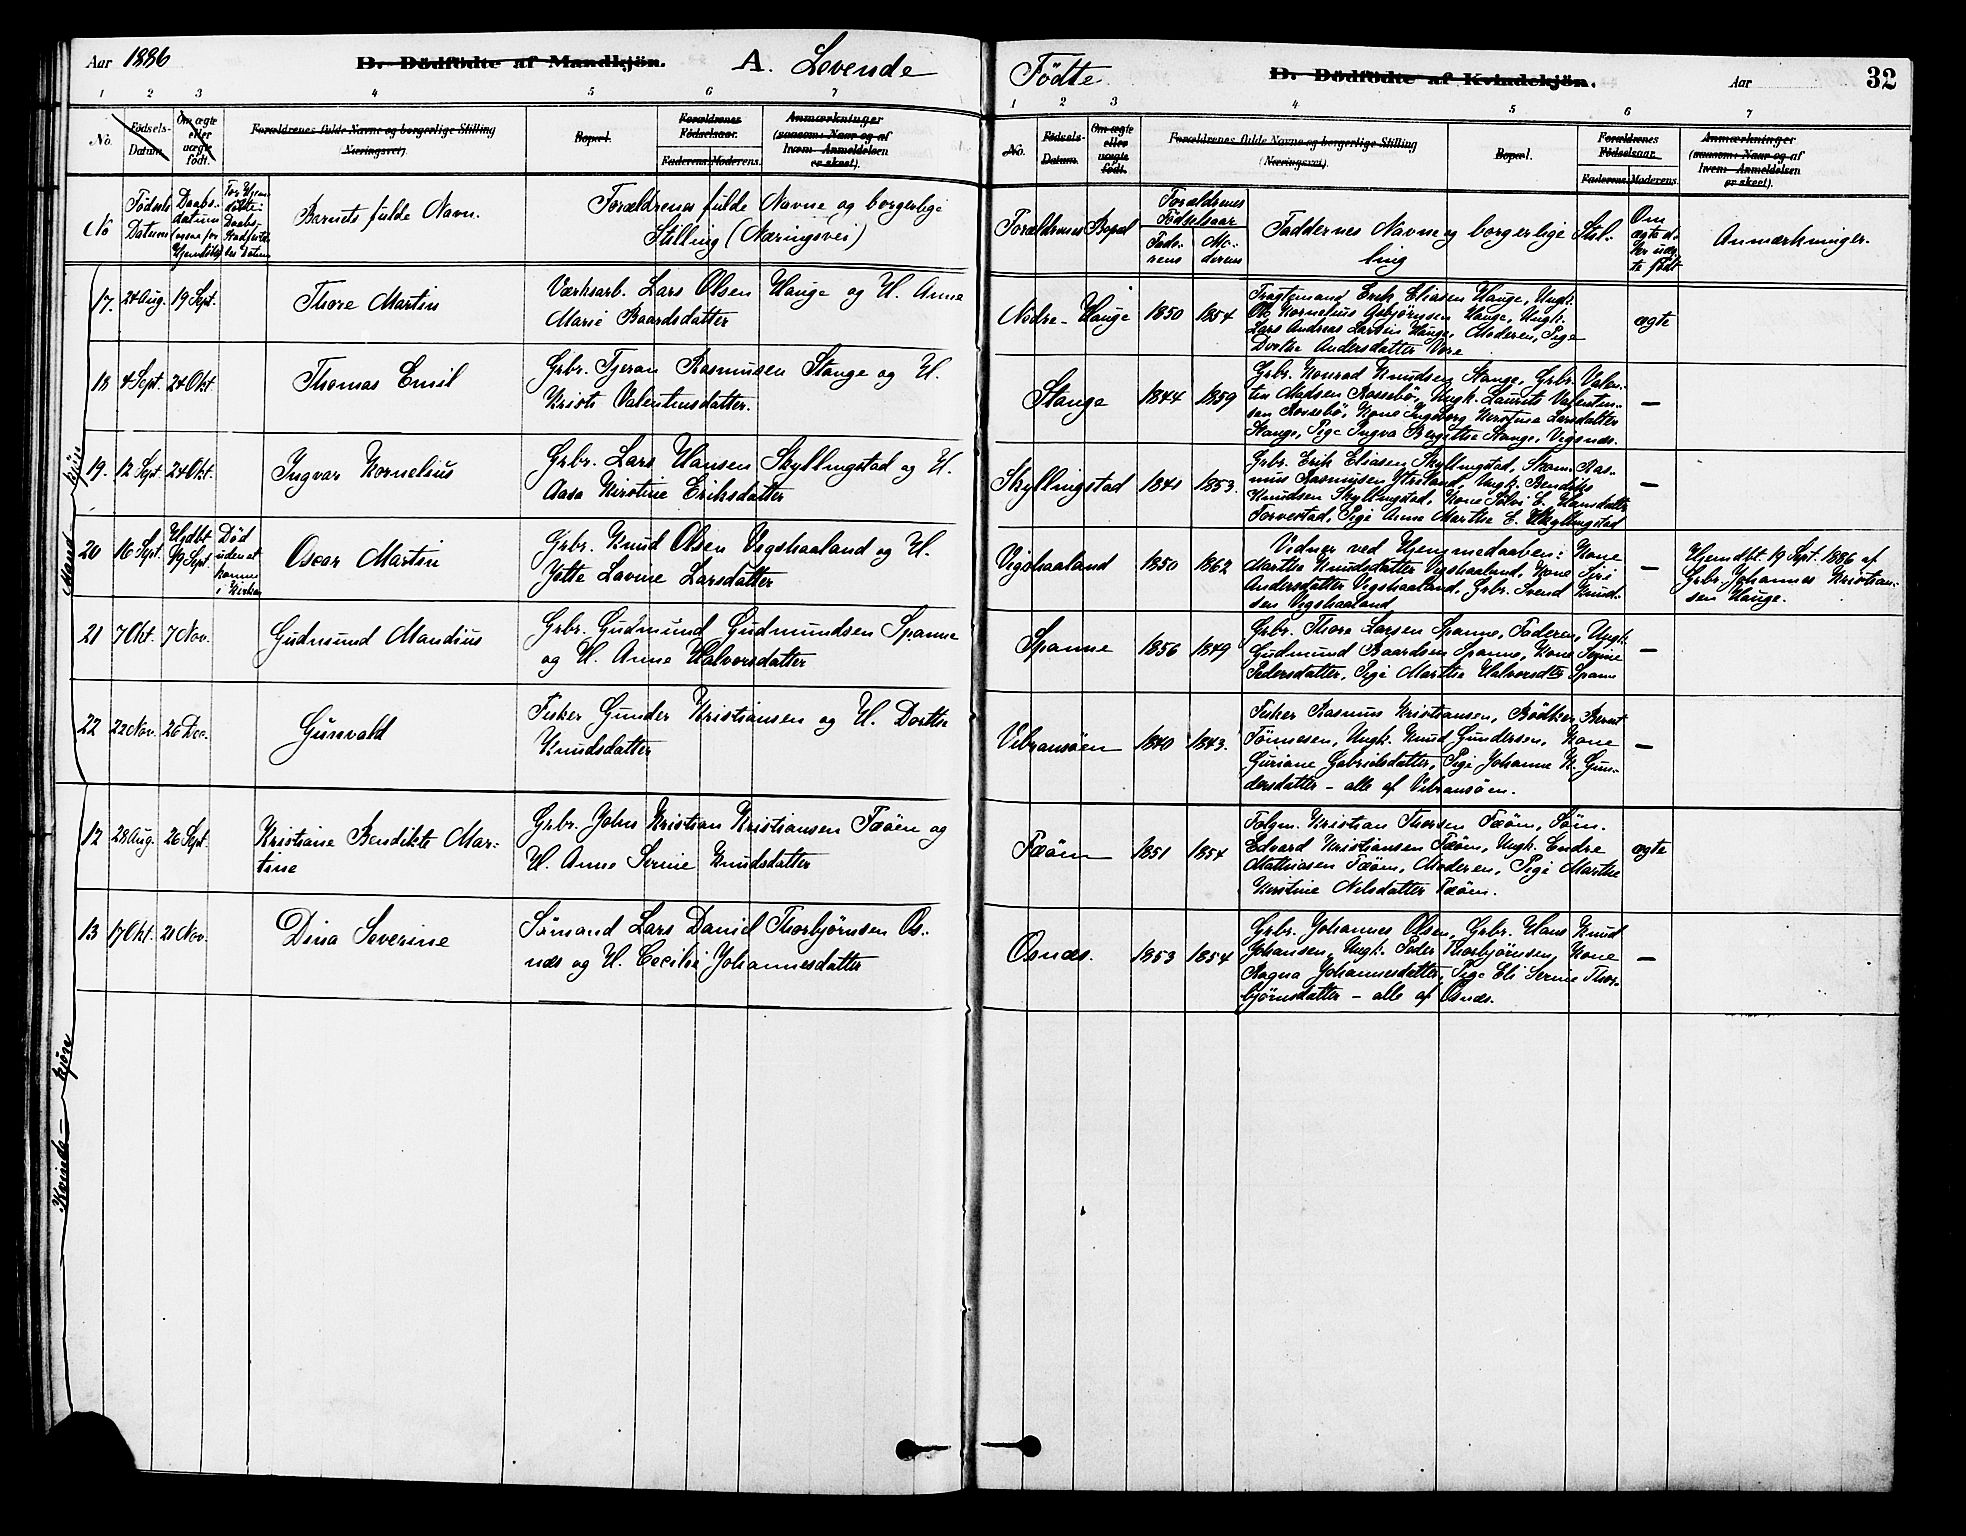 Aar 1886
D. Dödfödte af Mandkjön.
A. Levende
1 2 3 4 5 6 7
No.
Födsels-
Datum.
Om ægte
eller
uægte
födt.
Forældrenes fulde Navne og borgerlige Stilling
(Næringsvei).
Bopæl.
Forældrenes
Födselsaar.
Faderens. Moderens.
Anmærkninger
(saasom: Naar og af
hvem Anmeldelsen
er skeet).
No
Födsels
Datum
Daabs-
datum
Barnets fulde Navn.
Forældrenes fulde Navne og borgerlige
Stilling (Næringsvei)
Mandkjön
17. 24 Aug. 19 Sept. Thore Martin
Værksarb. Lars Olsen Hauge og H. Anne
Marie Baardsdatter
18 4 Sept. 24 Okt. Thomas Emil
Grbr. Tjeran Rasmussen Stange og H.
Kristi Valentinsdatter.
19. 12 Sept 24 Okt. Ingvar Kornelius
Grbr. Lars Hansen Skyllingstad og H.
Aasa Kirstine Eriksdatter
20 16 Sept. Hjdbt 19 Sept. Død
uden at
komme
i Kirken
Oscar Martin
Grbr. Knud Olsen Vigshaaland og H.
Jette Lavine Larsdatter
21 7 Okt. 7 Nov. Gudmund Mandius
Grbr. Gudmund Gudmundsen Spanne
og H. Anne Halvorsdatter
22 22 Nov. 26 Dec. Gunvald
Fisker Gunder Kristiansen og H. Dorthe
Knudsdatter
Kvinde-kjön
12 28 Aug. 26 Sept. Kristiane Bendikte Mar-
tine
Grbr. John Kristian Kristiansen Fæöen og
H. Anne Serine Knudsdatter
13 17 Okt. 21 Nov. Dina Severine
Sömand Lars Daniel Thorbjörnsen Os-
næs og H. Cecilie Johannesdatter
Födte
D. Dödfödte af Kvindekjön.
Aar
32
1 2 3 4 5 6 7
No.
Födsels-
Datum.
Om ægte
eller
uægte
födt.
Forældrenes fulde Navne og borgerlige Stilling
(Næringsvei).
Bopæl.
Forældrenes
Födselsaar.
Faderens. Moderens.
Anmærkninger
(saasom: Naar og af
hvem Anmeldelsen
er skeet).
Forældrenes Bopæl
Forældrenes
Födselsaar
Fade-
rens
Mo-
derens
Faddernes Navne og borgerlige Stil-
ling
Om
ægte el-
ler uæg-
te födt
Anmærkninger.
Nodre-Hauge 1850 1854
Fragtemand Erik Eliasen Hauge, Ungk.
Ole Kornelius Asbjörnsen Hauge, Ungk.
Lars Andreas Larsen Hauge, Moderen, Pige
Dorthe Andersdatter Vore
ægte
Stange 1844 1859
Grbr. Konrad Knudsen Stange, Grbr. Valen-
tin Madsen Rossebö, Ungk. Laurits Valentin-
sen Rossebö, Kone Ingeborg Kirstine Larsdatter
Stange, Pige Ingva Bergithe Stange, Vigsnæs.
—
Skyllingstad 1841 1853.
Grbr. Erik Eliasen Skyllingstad, Skom. Ras-
mus Rasmusen Ytreland, Ungk. Bendiks
Knudsen Skyllingstad, Kone Sölvi E. Hansdatter
Torvestad, Pige Anne Marthe E. Skyllingstad
—
Vigshaaland 1850 1862
Vidner ved Hjemmedaaben: Kone
Marthe Knudsdatter Vigshaaland, Kone Siri
Andersdatter Vigshaaland, Grbr. Svend Knud-
sen Vigshaaland
—
Hjemdbt. 19 Sept. 1886 af
Grbr. Johannes Kristian-
sen Hauge.
Spanne 1856 1849
Grbr. Thore Larsen Spanne, Faderen, Ungk.
Gudmund Baardsen Spanne, Kone
Pedersdatter, Pige Marthe Halvorsdtr Spanne
—
Vibransöen 1840 1843.
Fisker Rasmus Kristiansen, Bödker Bernt
Tönnesen, Ungk. Knud Gundersen, Kone
Guriane Gabrielsdatter, Pige Johanne K. Gun-
dersdatter – alle af Vibransöen.
—
Fæöen 1851 1854
Fölgm. Kristian Thorsen Fæöen, Söm.
Edvard Kristiansen Fæöen, Ungk. Endre
Mathiasen Fæöen, Moderen, Pige Marthe
Kirstine Nilsdatter Fæöen.
ægte
Osnæs. 1853 1854
Grbr. Johannes Olsen, Grbr. Hans Knud
Johansen, Ungk. Peder Thorbjörnsen, Kone
Ragna Johannesdatter, Pige Eli Serine Thor-
björnsdatter – alle af Osnæs.
—